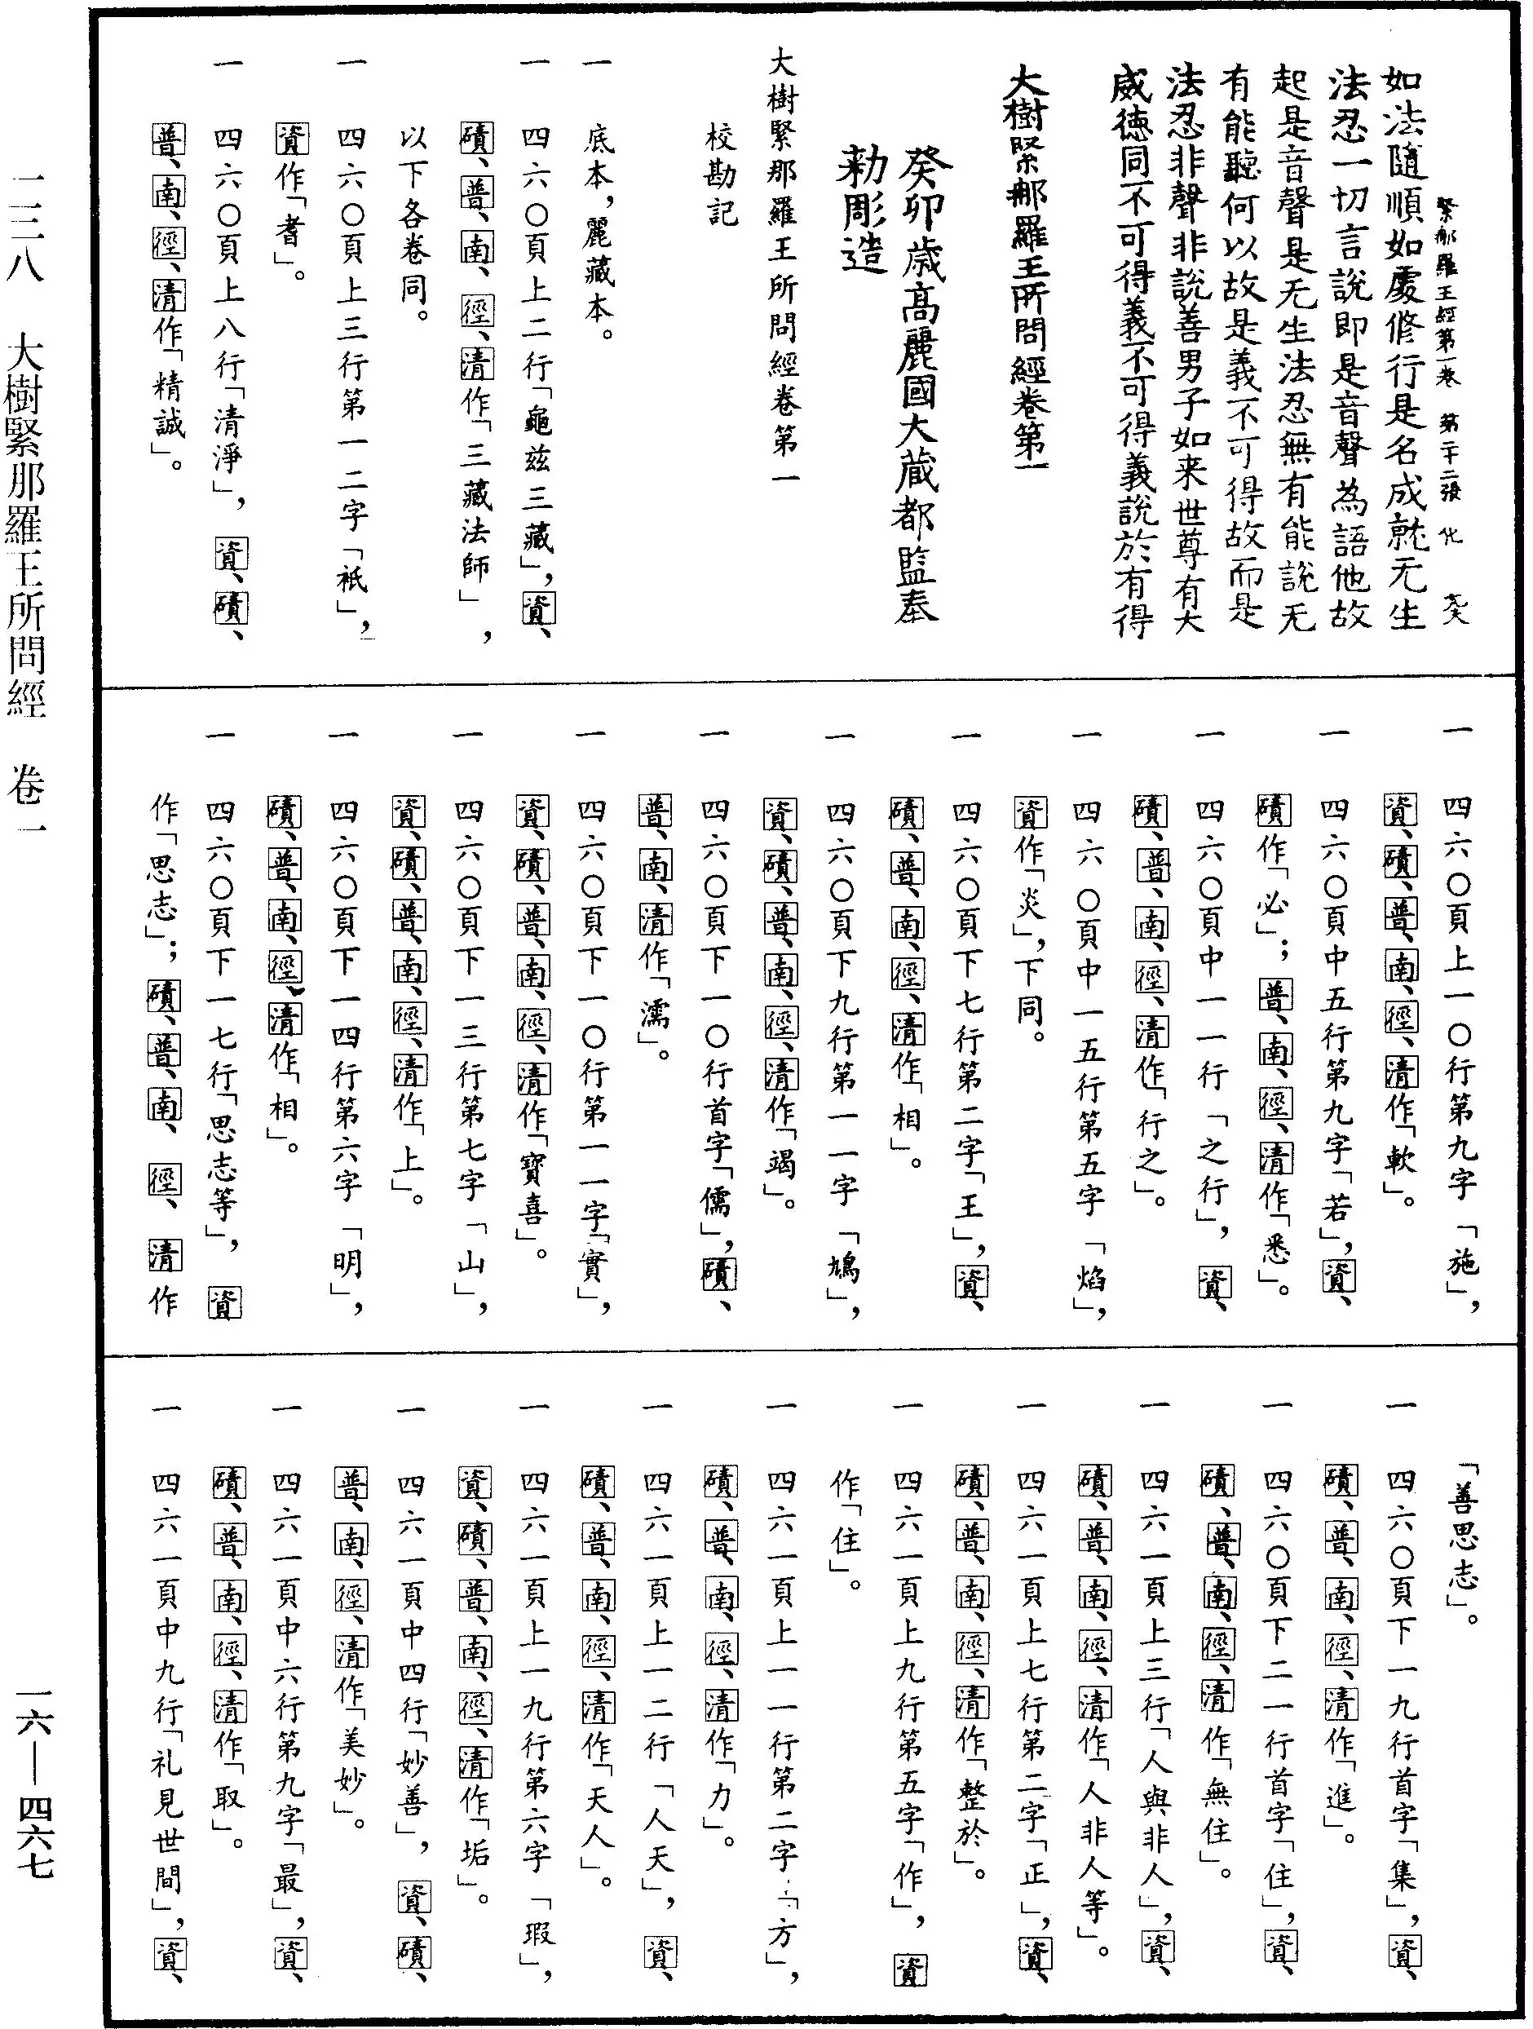 緊那羅王經第一卷　第二十二張　化
如法隨順如處修行是名成就无生
法忍一切言說即是音聲為語他故
起是音聲是无生法忍無有能說无
有能聽何以故是義不可得故而是
法忍非聲非說善男子如来世尊有大
威德同不可得義不可得義說於有得
大樹緊那羅王所問經卷第一
癸卯歳高麗國大蔵都監奉
勅彫造
大樹緊那羅王所問經卷第一
校勘記
一　底本，麗藏本。
一　四六〇頁上二行「龜兹三藏」，資、
磧、普、南、徑、清作「三藏法師」，
以下各卷同。
一　四六〇頁上三行第一二字「祇」，
資作「耆」。
一　四六〇頁上八行「清淨」，資、磧、
普、南、徑、清作「精誠」。
一　四六〇頁上一〇行第九字「施」，
資、磧、普、南、徑、清作「軟」。
一　四六〇頁中五行第九字「若」，資、
磧作「必」；普、南、徑、清作「悉」。
一　四六〇頁中一一行「之行」，資、
磧、普、南、徑、清作「行之」。
一　四六〇頁中一五行第五字「焰」，
資作「炎」，下同。
一　四六〇頁下七行第二字「王」，資、
磧、普、南、徑、清作「相」。
一　四六〇頁下九行第一一字「鳩」，
資、磧、普、南、徑、清作「竭」。
一　四六〇頁下一〇行首字「儒」，磧、
普、南、清作「濡」。
一　四六〇頁下一〇行第一一字「實」，
資、磧、普、南、徑、清作「寶喜」。
一　四六〇頁下一三行第七字「山」，
資、磧、普、南、徑、清作「上」。
一　四六〇頁下一四行第六字「明」，
磧、普、南、徑、清作「相」。
一　四六〇頁下一七行「思志等」，資
作「思志」；磧、普、南、徑、清作
「善思志」。
一　四六〇頁下一九行首字「集」，資、
磧、普、南、徑、清作「進」。
一　四六〇頁下二一行首字「住」，資、
磧、普、南、徑、清作「無住」。
一　四六一頁上三行「人與非人」，資、
磧、普、南、徑、清作「人非人等」。
一　四六一頁上七行第二字「正」，資、
磧、普、南、徑、清作「整於」。
一　四六一頁上九行第五字「作」，資
作「住」。
一　四六一頁上一一行第二字「方」，
磧、普、南、徑、清作「力」。
一　四六一頁上一二行「人天」，資、
磧、普、南、徑、清作「天人」。
一　四六一頁上一九行第六字「瑕」，
資、磧、普、南、徑、清作「垢」。
一　四六一頁中四行「妙善」，資、磧、
普、南、徑、清作「美妙」。
一　四六一頁中六行第九字「最」，資、
磧、普、南、徑、清作「取」。
一　四六一頁中九行「礼見世間」，資、
一三八　大樹緊那羅王所問經　卷一
一六—四六七